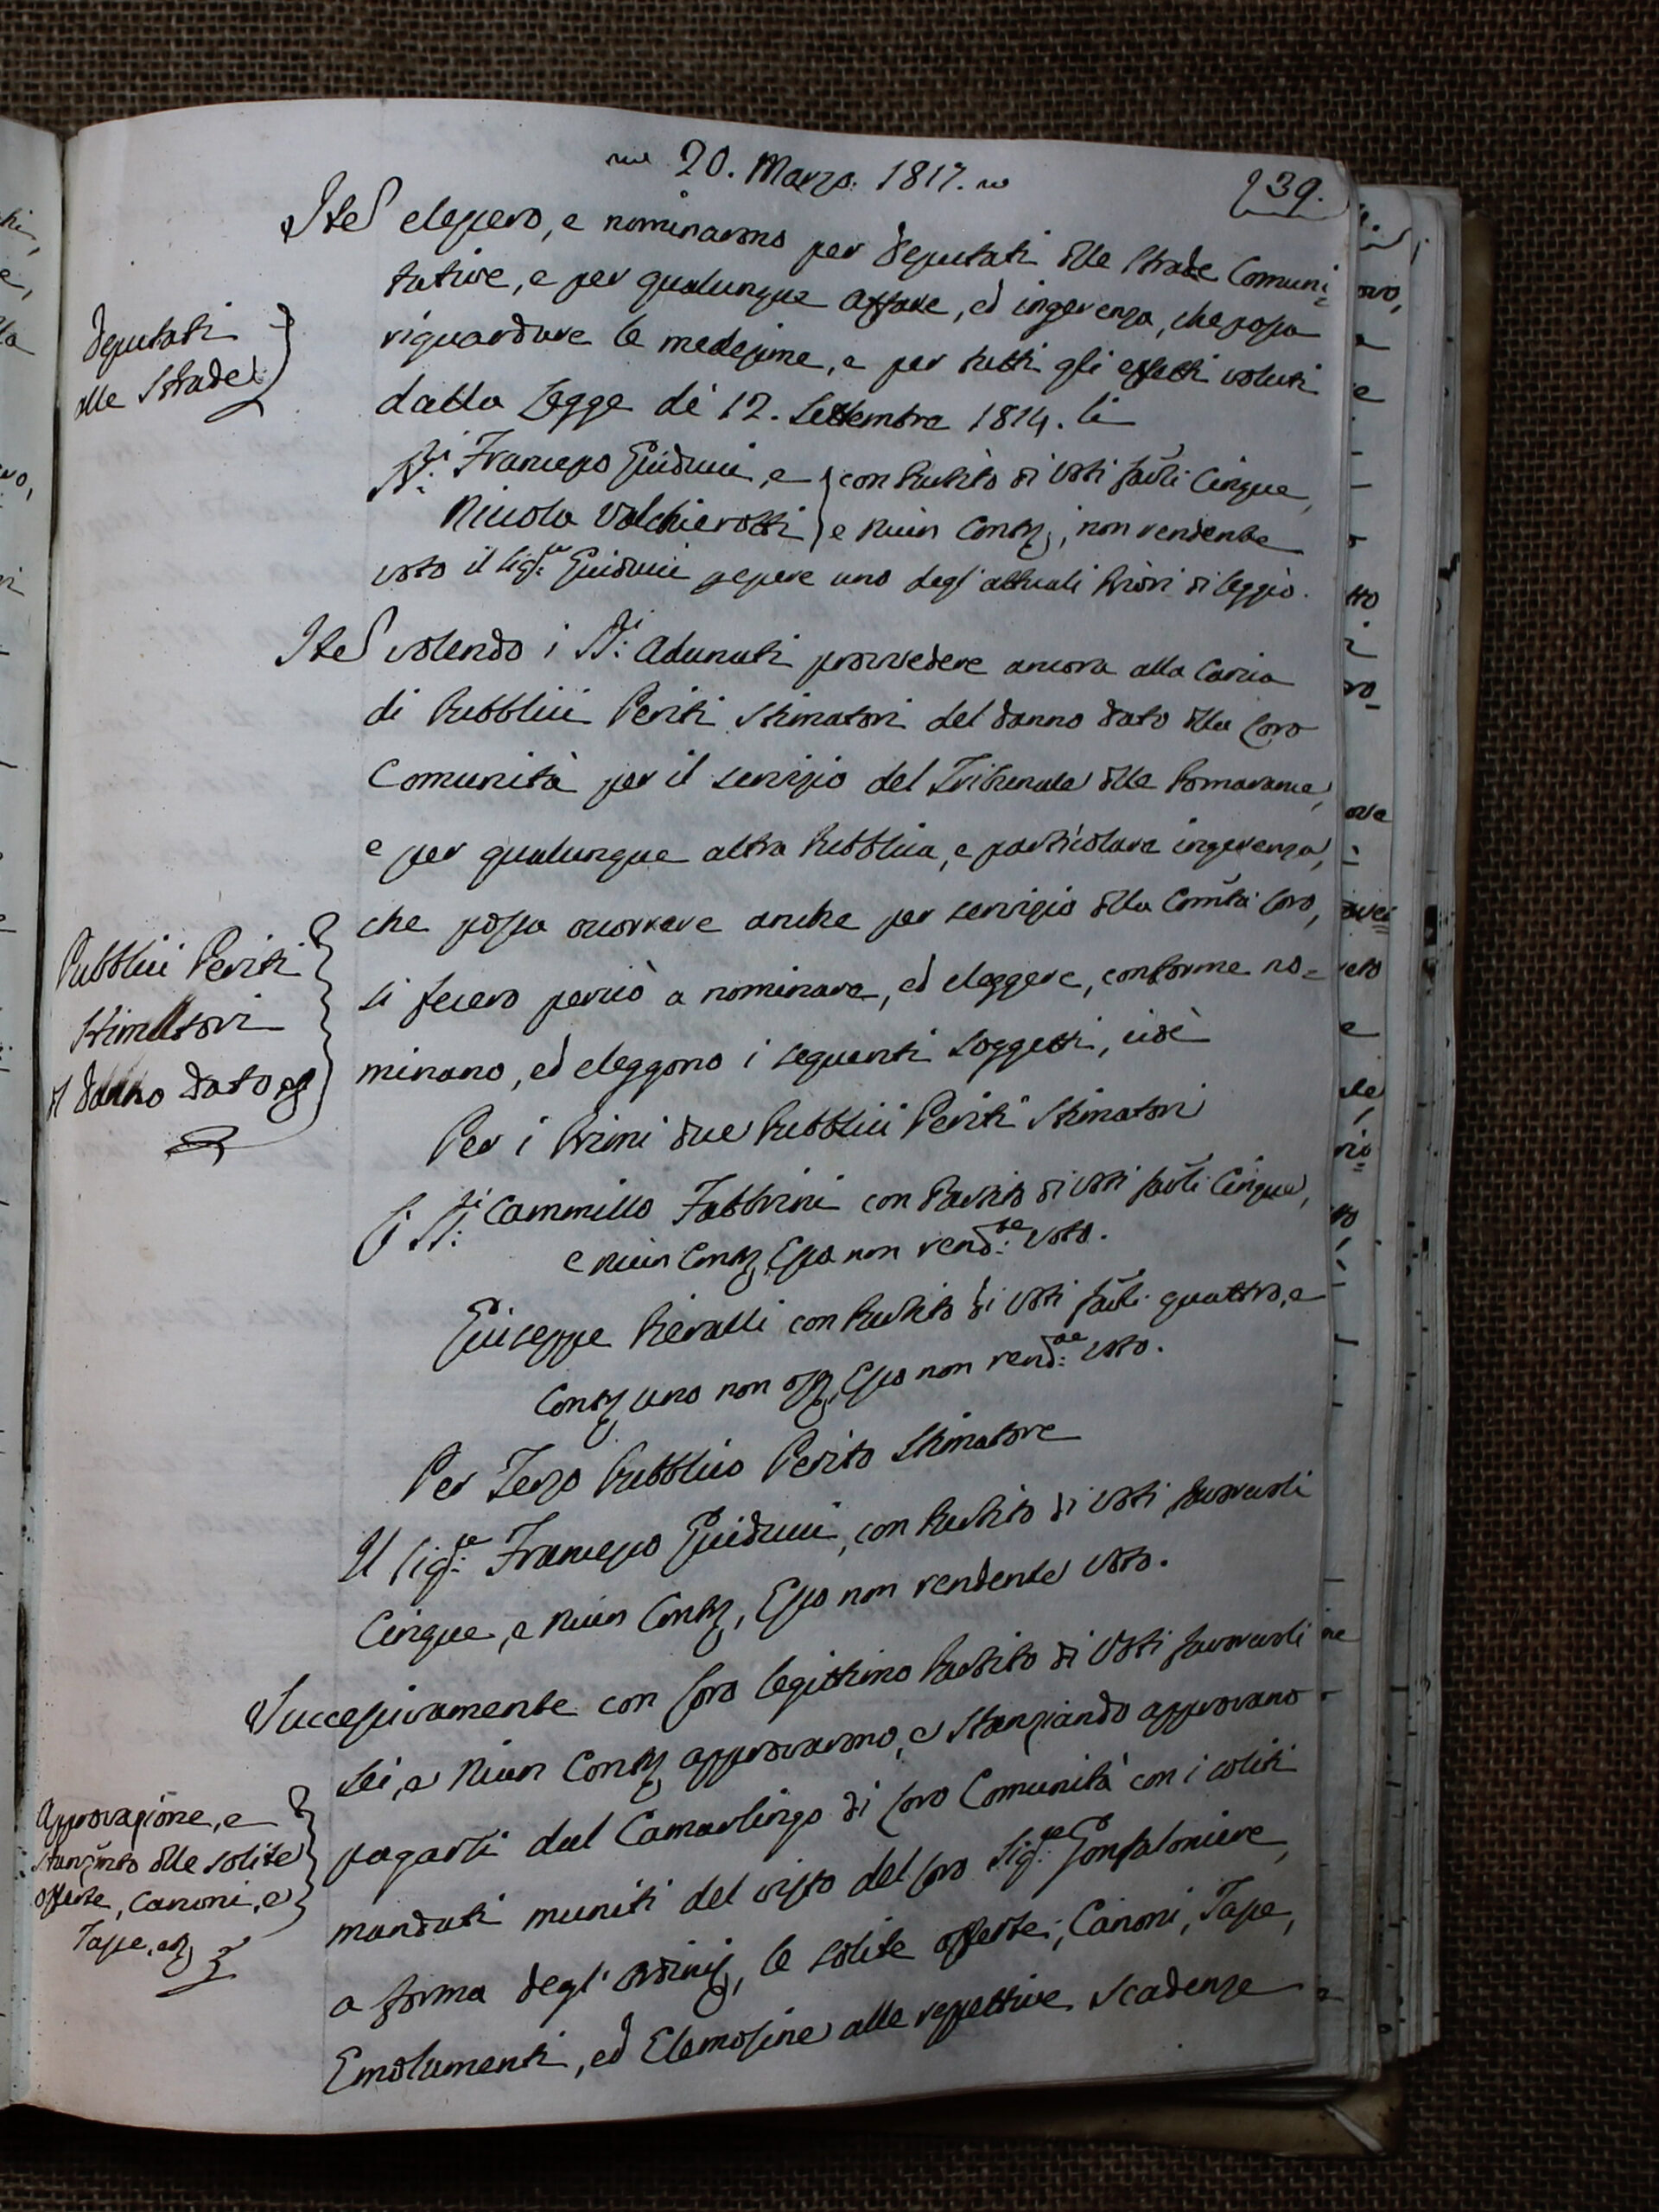 20. Marzo. 1817.
239.
Ite elessero, e nominarono per Deputati delle Strade Comuni=
tative, e per qualunque affare, ed ingerenza, che possa
riguardare le medesime, e per tutti gli effetti voluti
dalla Legge de 12. Settembre 1814. li
SS.ri Francesco Guiducci, e } con Partito di Voti favli Cinque,
Niccola Valchierotti } e niun Contr, non rendente
voto il Sig.re Guiducci p essere uno degl'attuali Priori di seggio.
Deputati
alle Strade
Ite volendo i SS.ri Adunati provvedere ancora alla Carica
di Pubblici Periti Stimatori del danno dato della loro
Comunità per il servizio del Tribunale delle Pomarance,
e per qualunque altra Pubblica, e particolare ingerenza,
che possa occorrere anche per servizio della Comtà loro,
si fecero perciò a nominare, ed eleggere, conforme no=
minano, ed eleggono i seguenti Soggetti, cioè
Pubblici Periti
Stimatori
di danno dato
Per i Primi due Pubblici Periti Stimatori
I SS.ri Cammillo Fabbrini con Partito di Voti favli Cinque,
e niun Contr, Esso non rend.te Voto.
Giuseppe Bevalli con Partito di Voti favli quattro, e
Contr uno non ost, Esso non rend.te Voto.
Per Terzo Pubblico Perito Stimatore
Il Sig.re Francesco Guiducci, con Partito di Voti favorevoli
Cinque, e niun Contr, Esso non rendente Voto.
Successivamente con loro legittimo Partito di Voti favorevoli
Sei, e Niun Contr approvarono, e Stanziando approvano
pagarsi dal Camarlingo di loro Comunità con i soliti
mandati muniti del visto del loro Sig.re Gonfaloniere,
a forma degl'ordini, le solite offerte, Canoni, Tasse,
Emolumenti, ed Elemosine alle respettive Scadenze
Approvazione, e
Stanzmto delle solite
offerte, Canoni, e
Tasse,